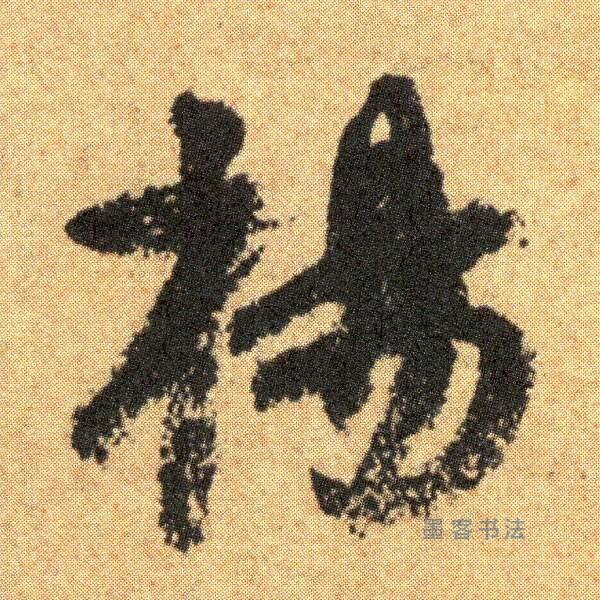 楊
墨客书法